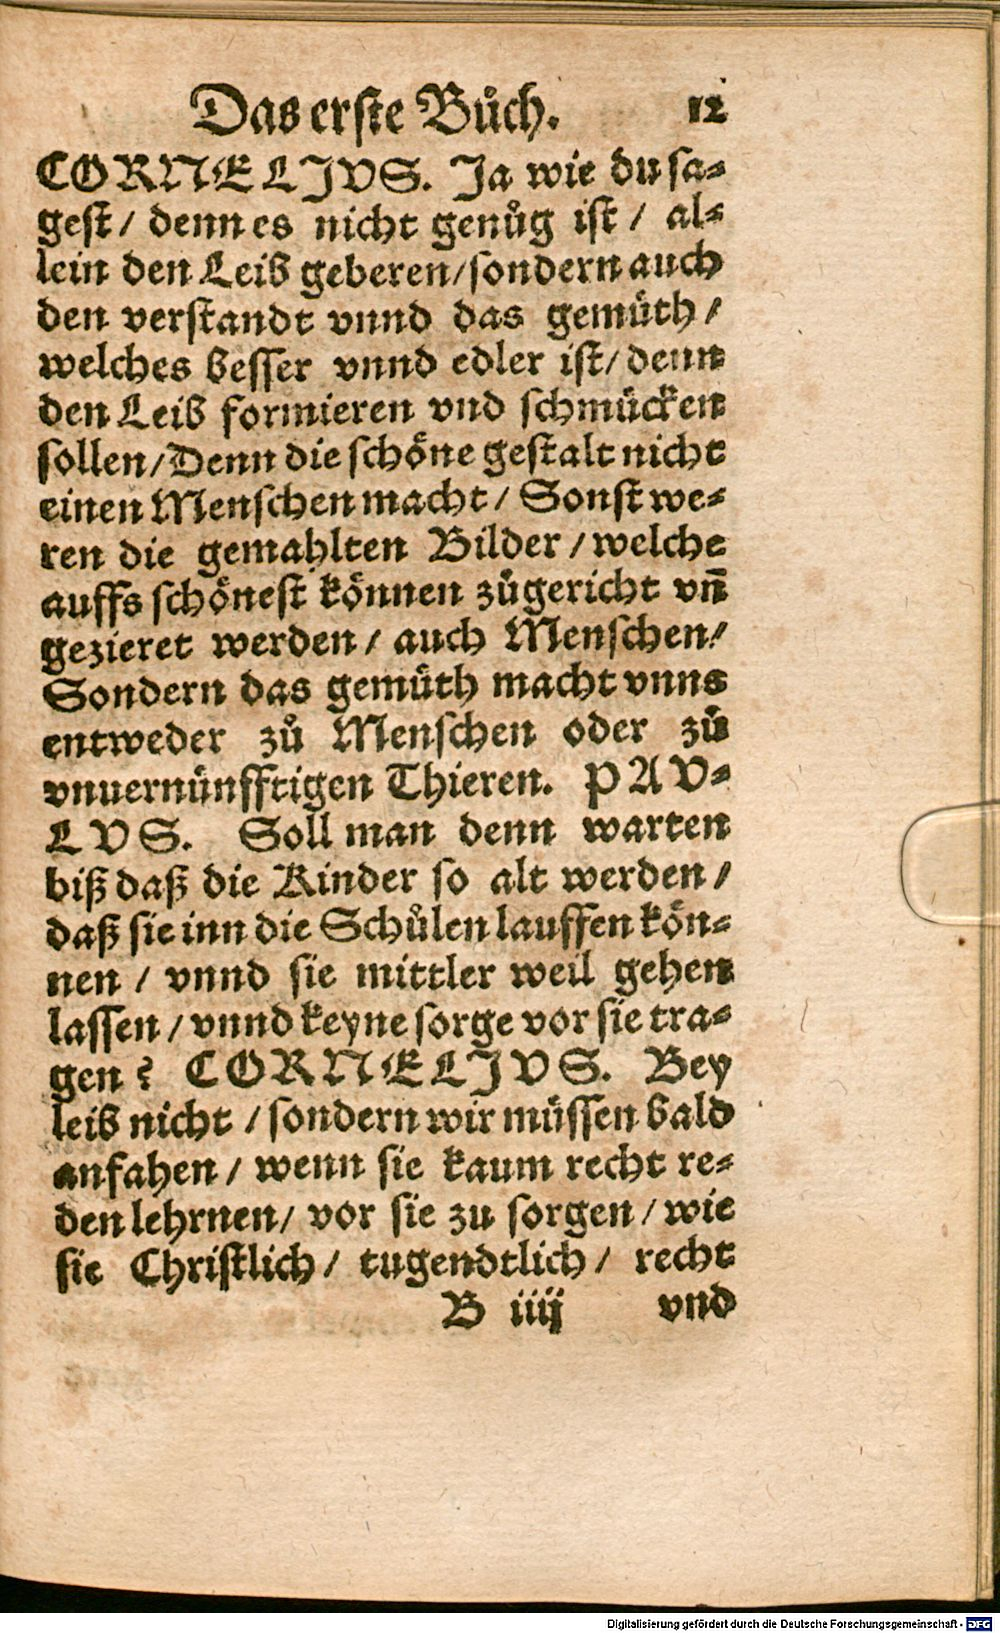 Das erste Bůch. 12
CORNELIVS. Ja wie du sa⸗
gest / denn es nicht genůg ist / al⸗
lein den Leib geberen / sondern auch
den verstandt vnnd das gemüth /
welches besser vnnd edler ist / denn
den Leib formieren vnd schmücken
sollen / Denn die schöne gestalt nicht
einen Menschen macht / Sonst we⸗
ren die gemahlten Bilder / welche
auffs schönest können zůgericht vñ
gezieret werden / auch Menschen /
Sondern das gemüth macht vnns
entweder zů Menschen oder zů
vnuernünfftigen Thieren. PAV⸗
LVS. Soll man denn warten
biß daß die Kinder so alt werden /
daß sie inn die Schůlen lauffen kön⸗
nen / vnnd sie mittler weil gehen
lassen / vnnd keyne sorge vor sie tra⸗
gen? CORNELIVS. Bey
leib nicht / sondern wir müssen bald
anfahen / wenn sie kaum recht re⸗
den lehrnen / vor sie zu sorgen / wie
sie Christlich / tugendtlich / recht
B iiij vnd
Digitalisierung gefördert durch die Deutsche Forschungsgemeinschaft - DFG